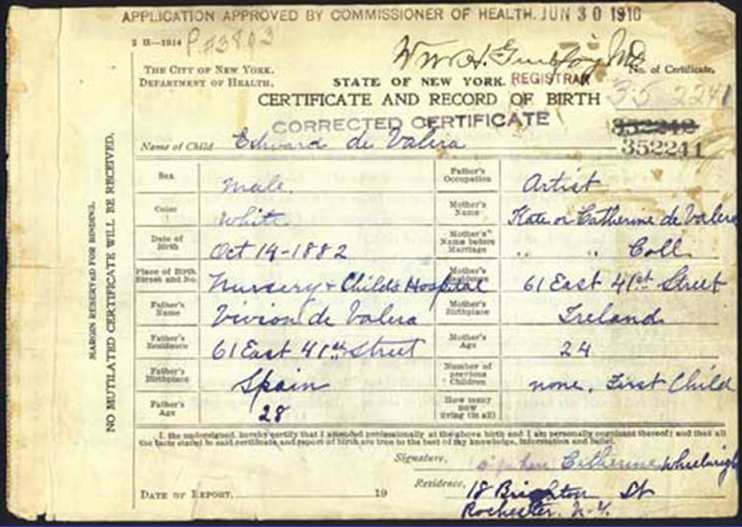 APPLICATION APPROVED BY COMMISSIONER OF HEALTH. JUN 30 1916
2 H—1914
THE CITY OF NEW YORK.
DEPARTMENT OF HEALTH.
STATE OF NEW YORK. REGISTRAR
No. of Certificate,
CERTIFICATE AND RECORD OF BIRTH
35 2241
CORRECTED CERTIFICATE
352242
352241
Name of Child Edward de Valera
Sex male
Father's Occupation Artist
Color White
Mother's Name Kate or Catherine de Valera
Date of Birth Oct 14-1882
Mother's Name before Marriage " " Coll
Place of Birth Street and No. Nursery + Child's Hospital
Mother's Residence 61 East 41st Street
Father's Name Vivion de Valera
Mother's Birthplace Ireland
Father's Residence 61 East 41st Street
Mother's Age 24
Father's Birthplace Spain
Number of previous Children none, First Child
Father's Age 28
How many now living (in all)
I, the undersigned, hereby certify that I attended professionally at the above birth and I am personally cognizant thereof; and that all
the facts stated in said certificate and report of birth are true to the best of my knowledge, information and belief.
Signature, Catherine Wheelwright
Residence, 18 Brighton St
DATE OF REPORT, 19
Rochester. N-Y.
MARGIN RESERVED FOR BINDING.
NO MUTILATED CERTIFICATE WILL BE RECEIVED.